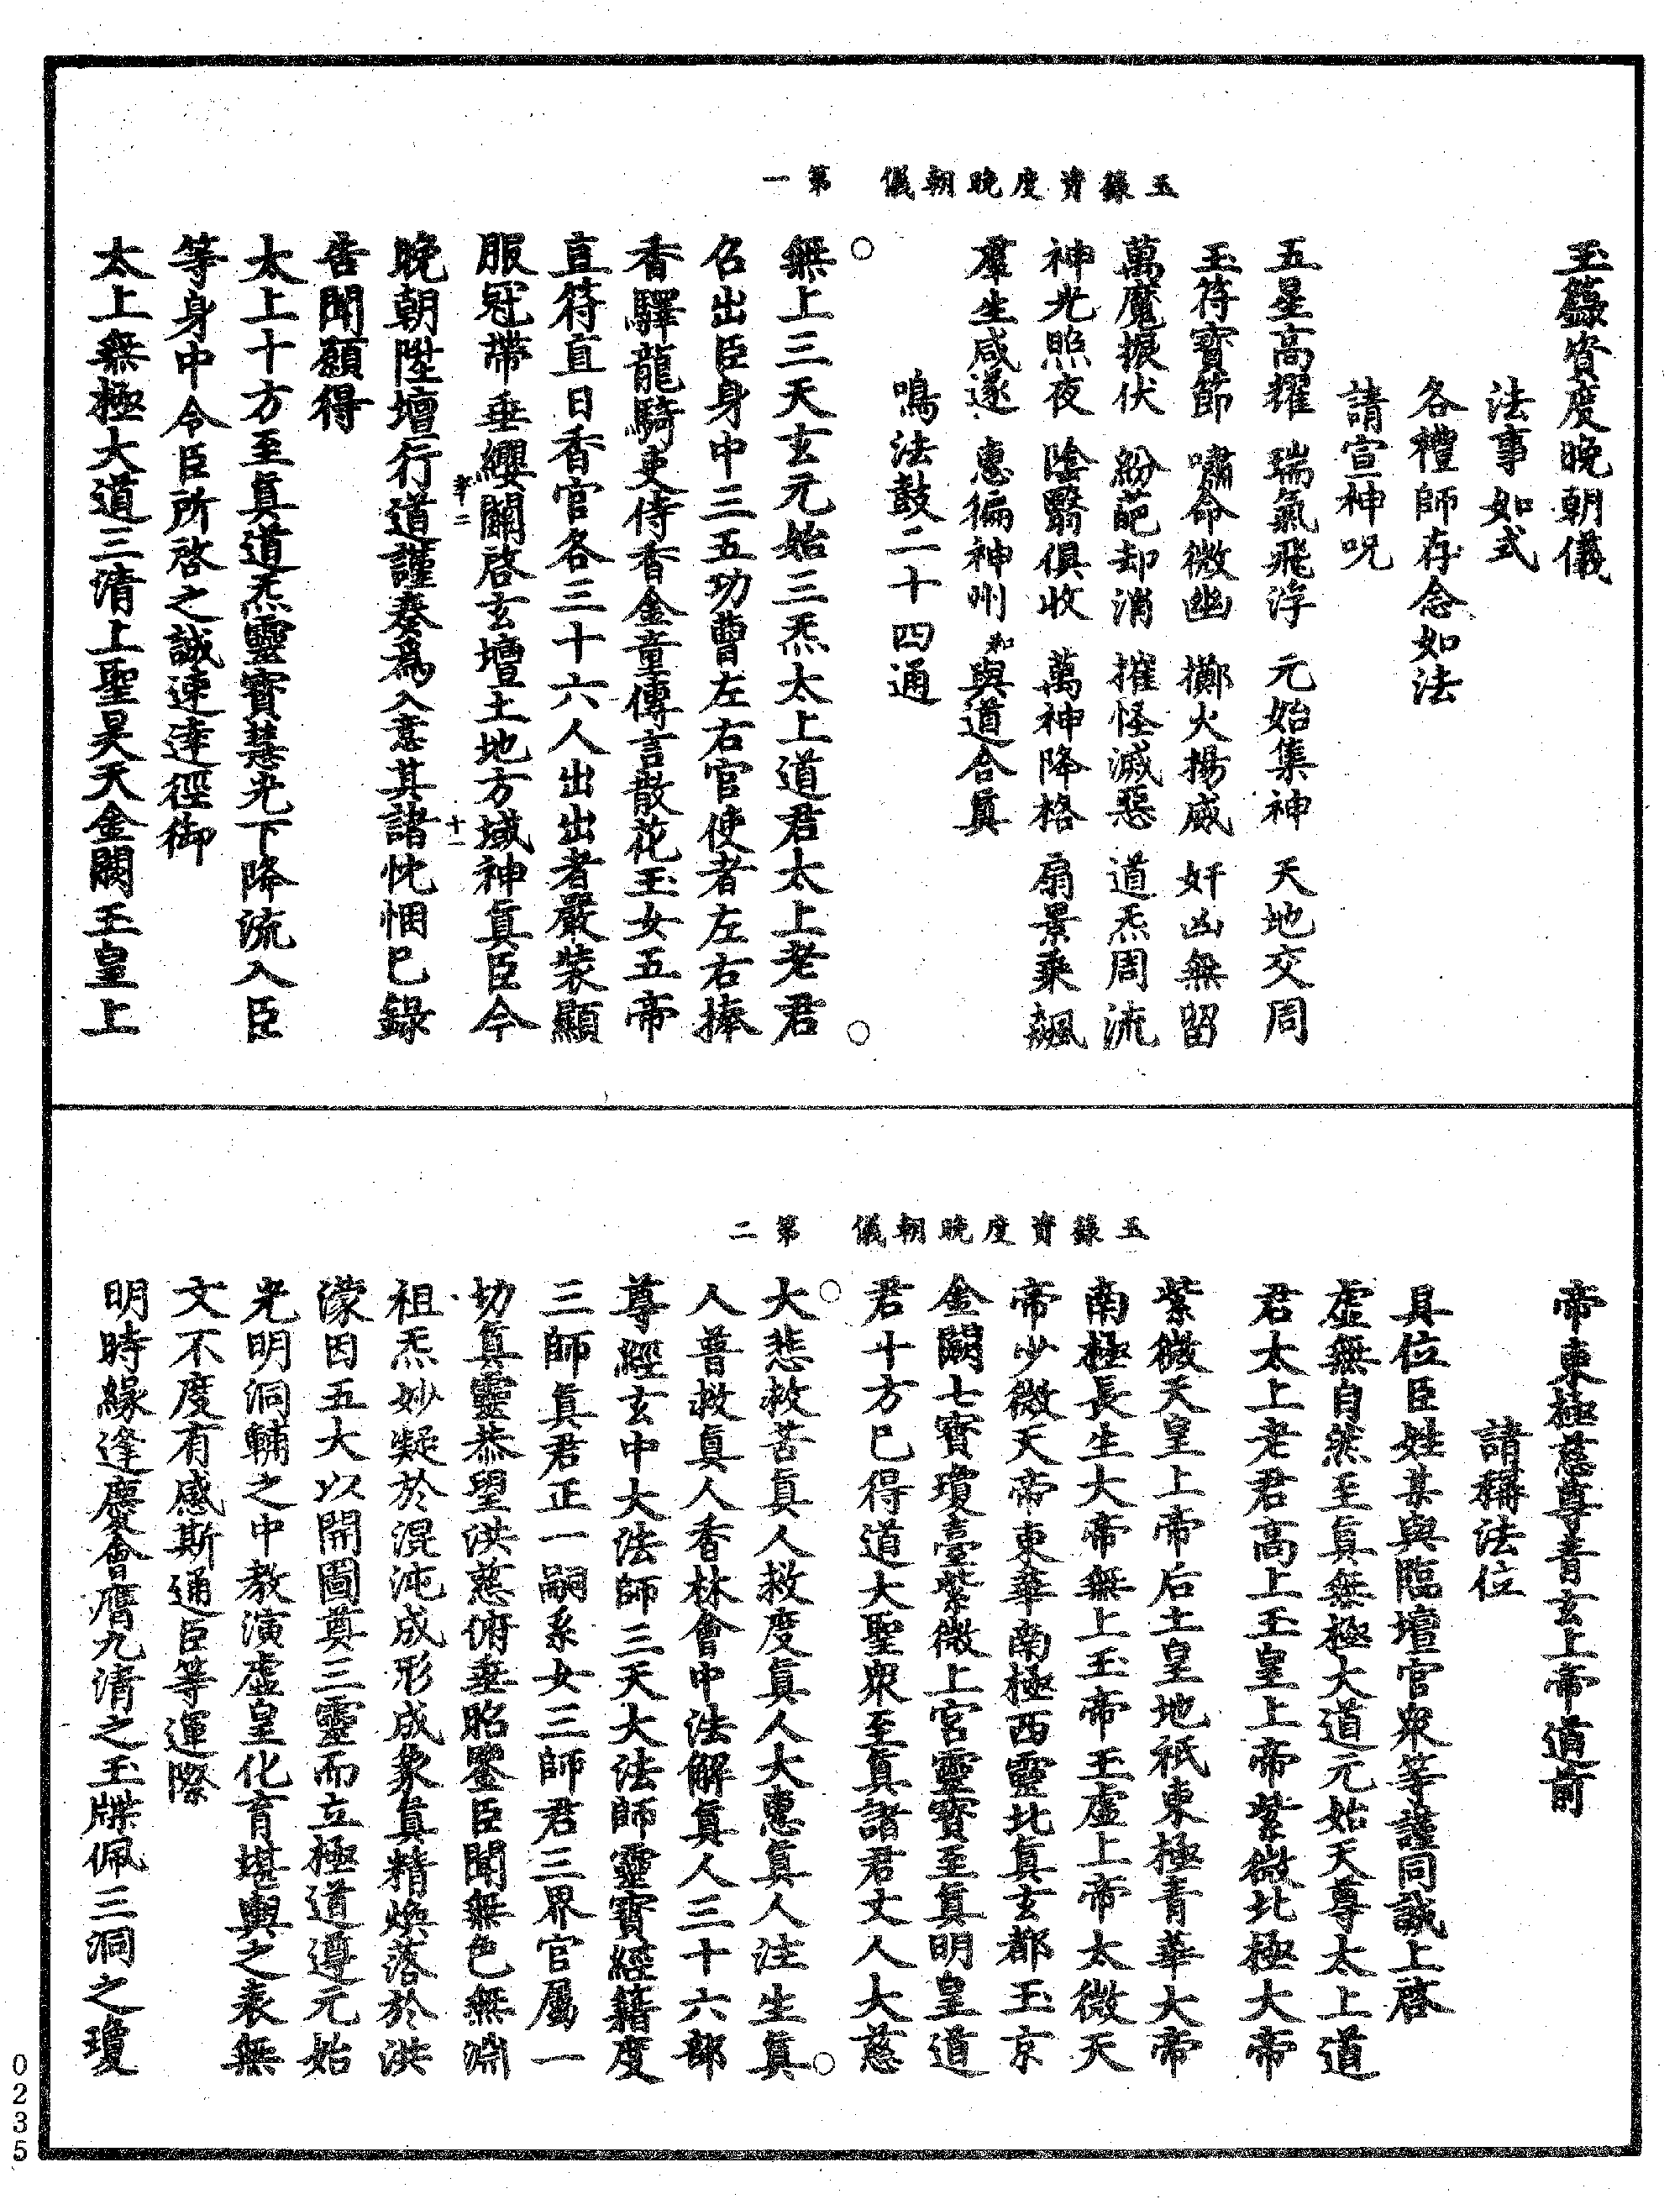 玉籙資度晚朝儀　第一
玉籙資度晚朝儀
法事如式
各禮師存念如法
請宣神呪
五星高耀　瑞氣飛浮　元始集神　天地交周
玉符寶節　嘯命微幽　擲火揚威　奸凶無留
萬魔振伏　紛葩却消　摧怪滅惡　道炁周流
神光照夜　陰翳俱收　萬神降格　扇景乘飆
羣生咸遂　惠徧神州　和與道合真
鳴法鼓二十四通
無上三天玄元始三炁太上道君太上老君
召出臣身中三五功曹左右官使者左右捧
香驛龍騎吏侍香金童傳言散花玉女五帝
直符直日香官各三十六人出出者嚴裝顯
服冠帶垂纓關啓玄壇土地方域神真臣今
晚朝陞壇行道謹奏爲入意其諸忱悃已錄
告聞願得
太上十方至真道炁靈寶慧光下降流入臣
等身中令臣所啓之誠速達徑御
太上無極大道三清上聖昊天金闕玉皇上
玉籙資度晚朝儀　第二
帝東極慈尊青玄上帝道前
請稱法位
具位臣姓某與臨壇官眾等謹同誠上啓
虛無自然至真無極大道元始天尊太上道
君太上老君高上玉皇上帝紫微北極大帝
紫微天皇上帝后土皇地祇東極青華大帝
南極長生大帝無上玉帝玉虛上帝太微天
帝少微天帝東華南極西靈北真玄都玉京
金闕七寶瓊臺紫微上宮靈寶至真明皇道
君十方已得道大聖眾至真諸君丈人大慈
大悲救苦真人救度真人大惠真人注生真
人普救真人香林會中法解真人三十六部
尊經玄中大法師三天大法師靈寶經籍度
三師真君正一嗣系女三師君三界官屬一
切真靈恭望洪慈俯垂昭鑒臣聞無色無淵
祖炁妙凝於混沌成形成象真精煥落於洪
濛因五大以開圖奠三靈而立極道遵元始
光明洞輔之中教演虛皇化育堪輿之表無
文不度有感斯通臣等運際
明時緣逢慶會膺九清之玉牒佩三洞之瓊
0235